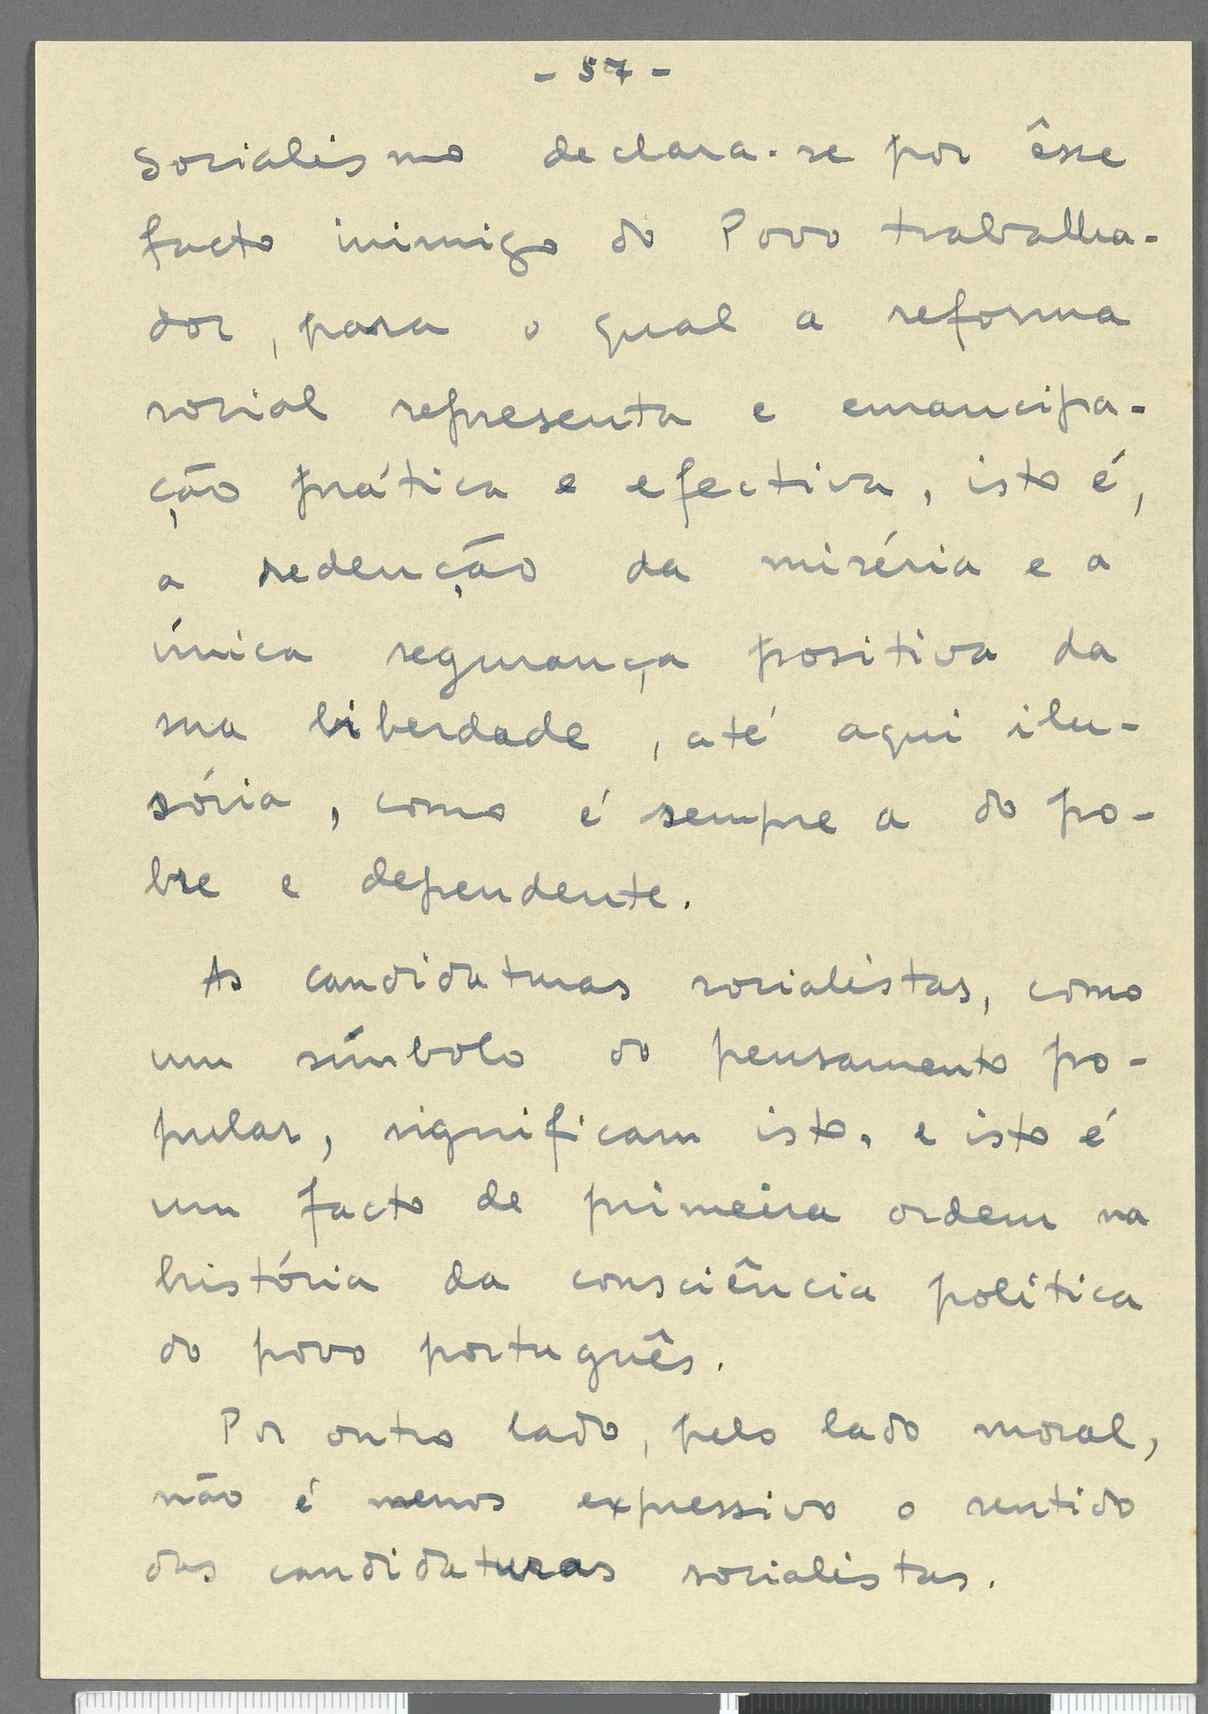 - 57 -
socialismo declara-se por êsse
facto inimigo do Povo trabalha-
dor, para o qual a reforma
social representa e emancipa-
ção prática e efectiva, isto é,
a redenção da miséria e a
única segurança positiva da
sua liberdade, até aqui ilu-
sória, como é sempre a do po-
bre e dependente.
As candidaturas socialistas, como
um símbolo do pensamento po-
pular, significam isto, e isto é
um facto de primeira ordem na
história da consciência política
do povo português.
Por outro lado, pelo lado moral,
não é menos expressivo o sentido
das candidaturas socialistas.